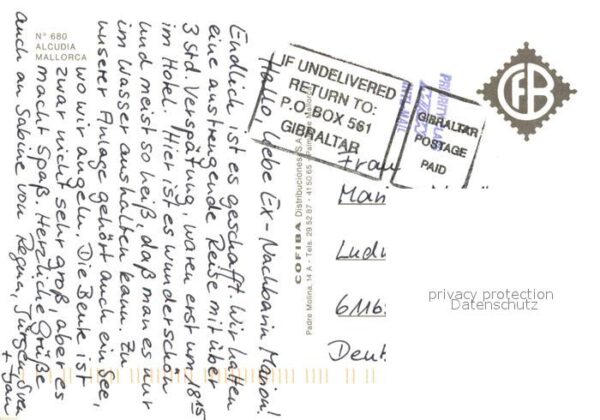 N° 680
ALCUDIA
MALLORCA
Hallo, liebe Ex-Nachbarin Marion!
Endlich ist es geschafft. Wir hatten
eine anstrengende Reise mit über
3 Std. Verspätung, waren erst um 18¹⁵
im Hotel. Hier ist es wunderschön
und meist so heiß, daß man es nur
im Wasser aushalten kann. Zu
unserer Anlage gehört auch ein See,
wo wir angeln. Die Beute ist
zwar nicht sehr groß, aber es
macht Spaß. Herzliche Grüße
auch an Sabine von Regina, Jürgen, Sven
+ Jan
COFIBA Distribuciones, S.A.
Padre Molina, 14 A - Tels. 29 52 87 - 41 50 65 - Palma de Mallorca
IF UNDELIVERED
RETURN TO:
P.O. BOX 561
GIBRALTAR
GIBRALTAR
POSTAGE
PAID
CFB
Frau
Mari
Ludw
6116
Deut
privacy protection
Datenschutz